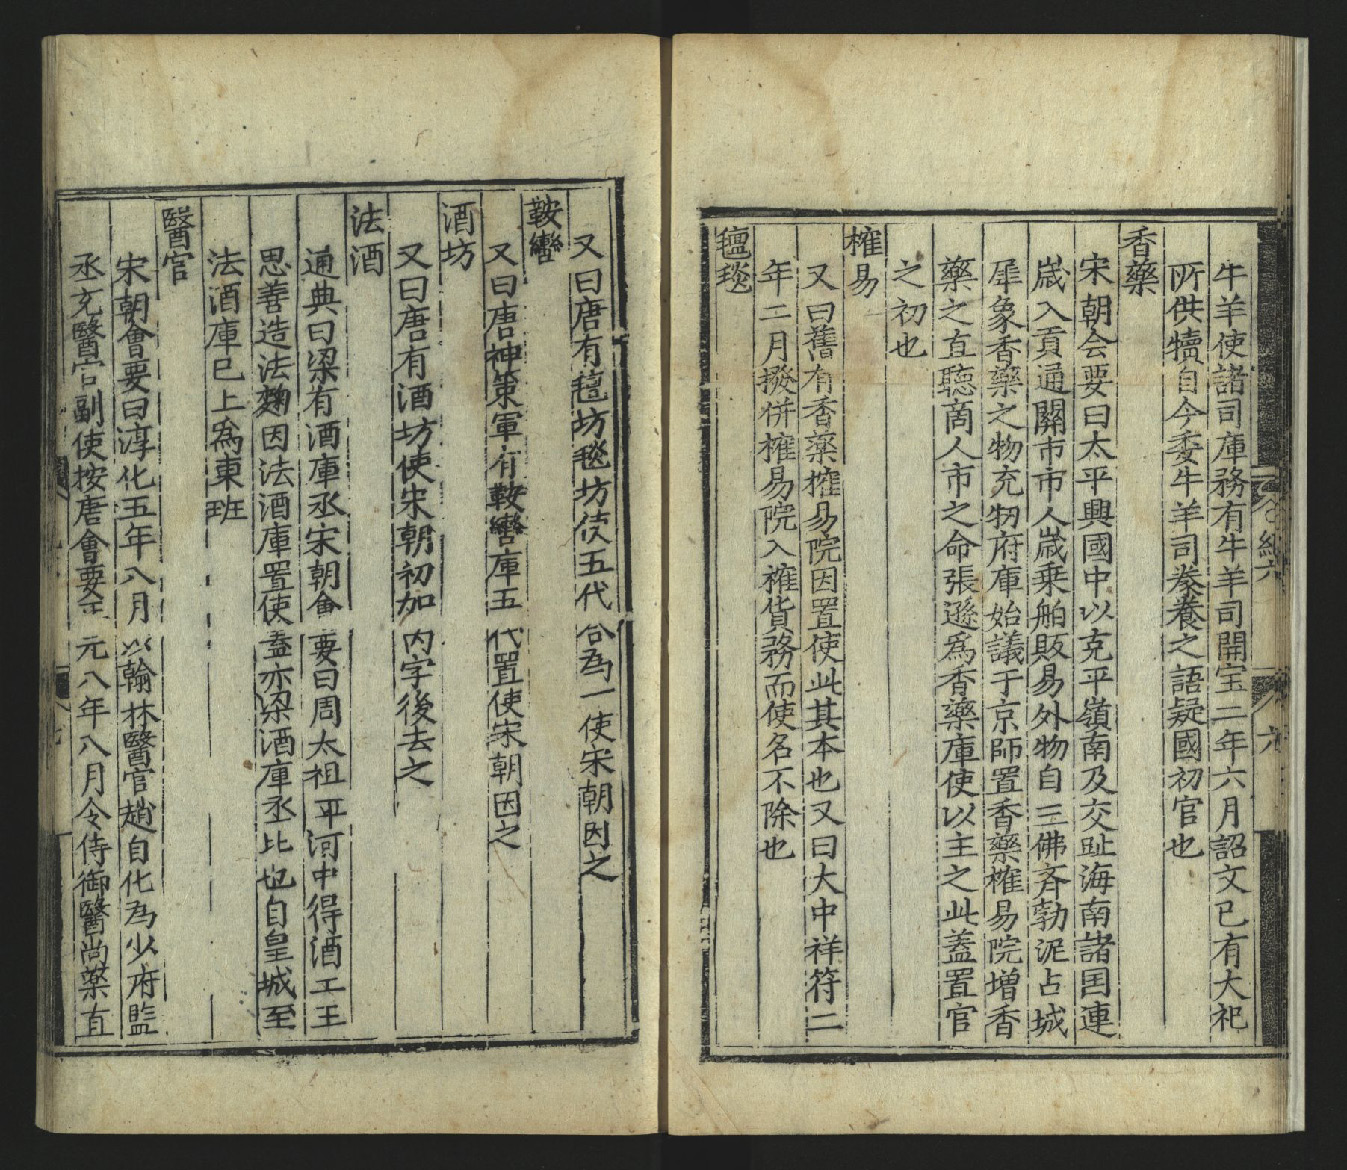 牛羊使諸司庫務有牛羊司開宝二年六月詔文已有大祀
所供犢自今委牛羊司豢養之語疑國初官也
香藥
宋朝会要曰太平興國中以克平嶺南及交趾海南諸国連
歳入貢通關市市人歳乗舶販易外物自三佛齐勃泥占城
犀象香藥之物充牣府庫始議于京師置香藥榷易院增香
藥之直聽商人市之命張遜爲香藥庫使以主之此蓋置官
之初也
榷易
又曰舊有香藥榷易院因置使此其本也又曰大中祥符二
年二月撥併榷易院入榷货務而使名不除也
氊毯
又曰唐有氊坊毯坊使五代合為一使宋朝因之
鞍轡
又曰唐神策軍有鞍轡庫五代置使宋朝因之
酒坊
又曰唐有酒坊使宋朝初加内字後去之
法酒
通典曰梁有酒庫丞宋朝會要曰周太祖平河中得酒工王
思善造法麴因法酒庫置使蓋亦梁酒庫丞比也自皇城至
法酒庫已上爲東班
醫官
宋朝會要曰淳化五年八月以翰林醫官趙自化為少府監
丞充醫官副使按唐會要元八年八月令侍御醫尚藥直